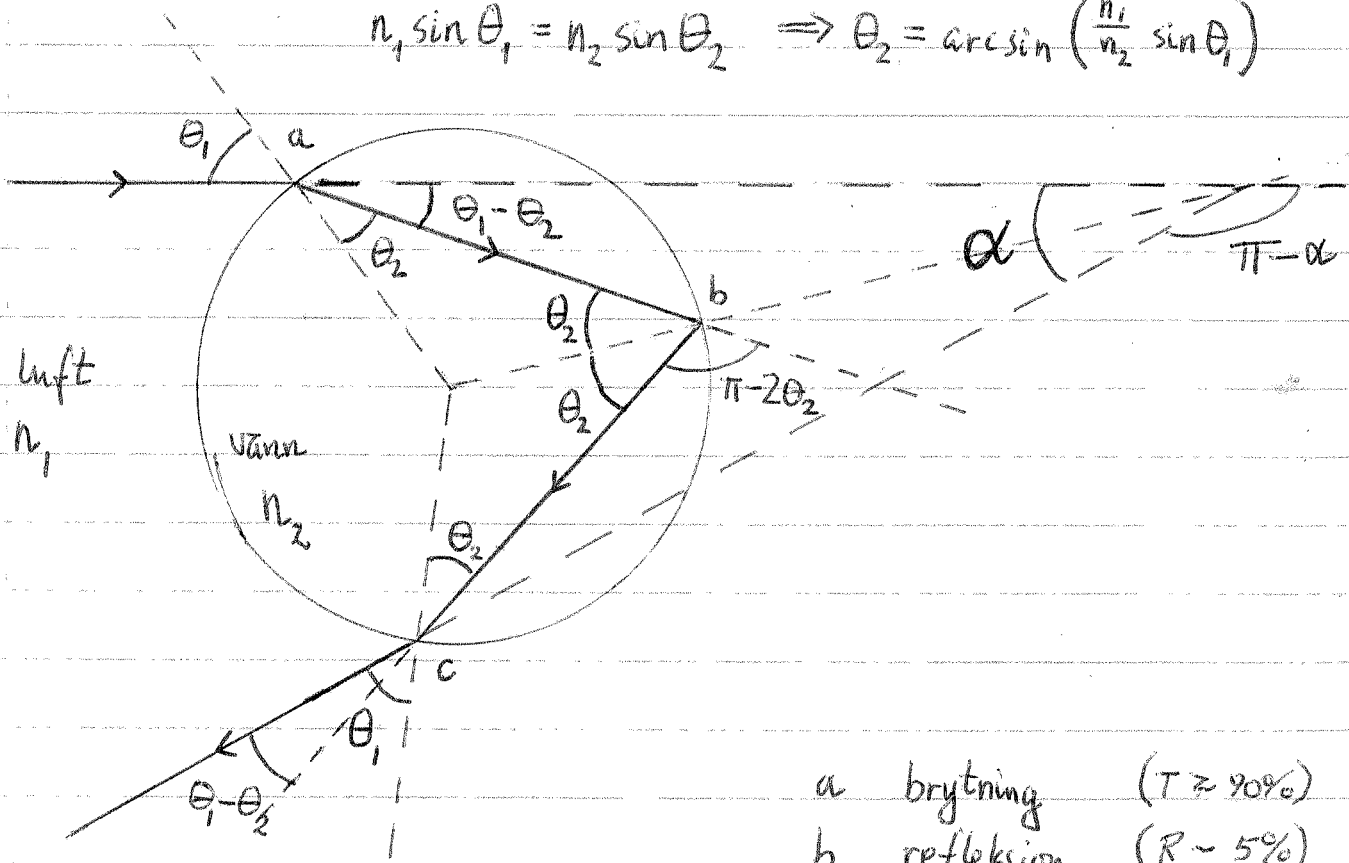 n₁ sin θ₁ = n₂ sin θ₂ ⟹ θ₂ = arcsin (n₁/n₂ sin θ₁)
θ₁
a
θ₁-θ₂
θ₂
α
π-α
b
θ₂
π-2θ₂
θ₂
luft
n₁
vann
n₂
θ₂
c
θ₁
θ₁-θ₂
a brytning (T ≳ 90%)
b refleksjon (R ~ 5%)